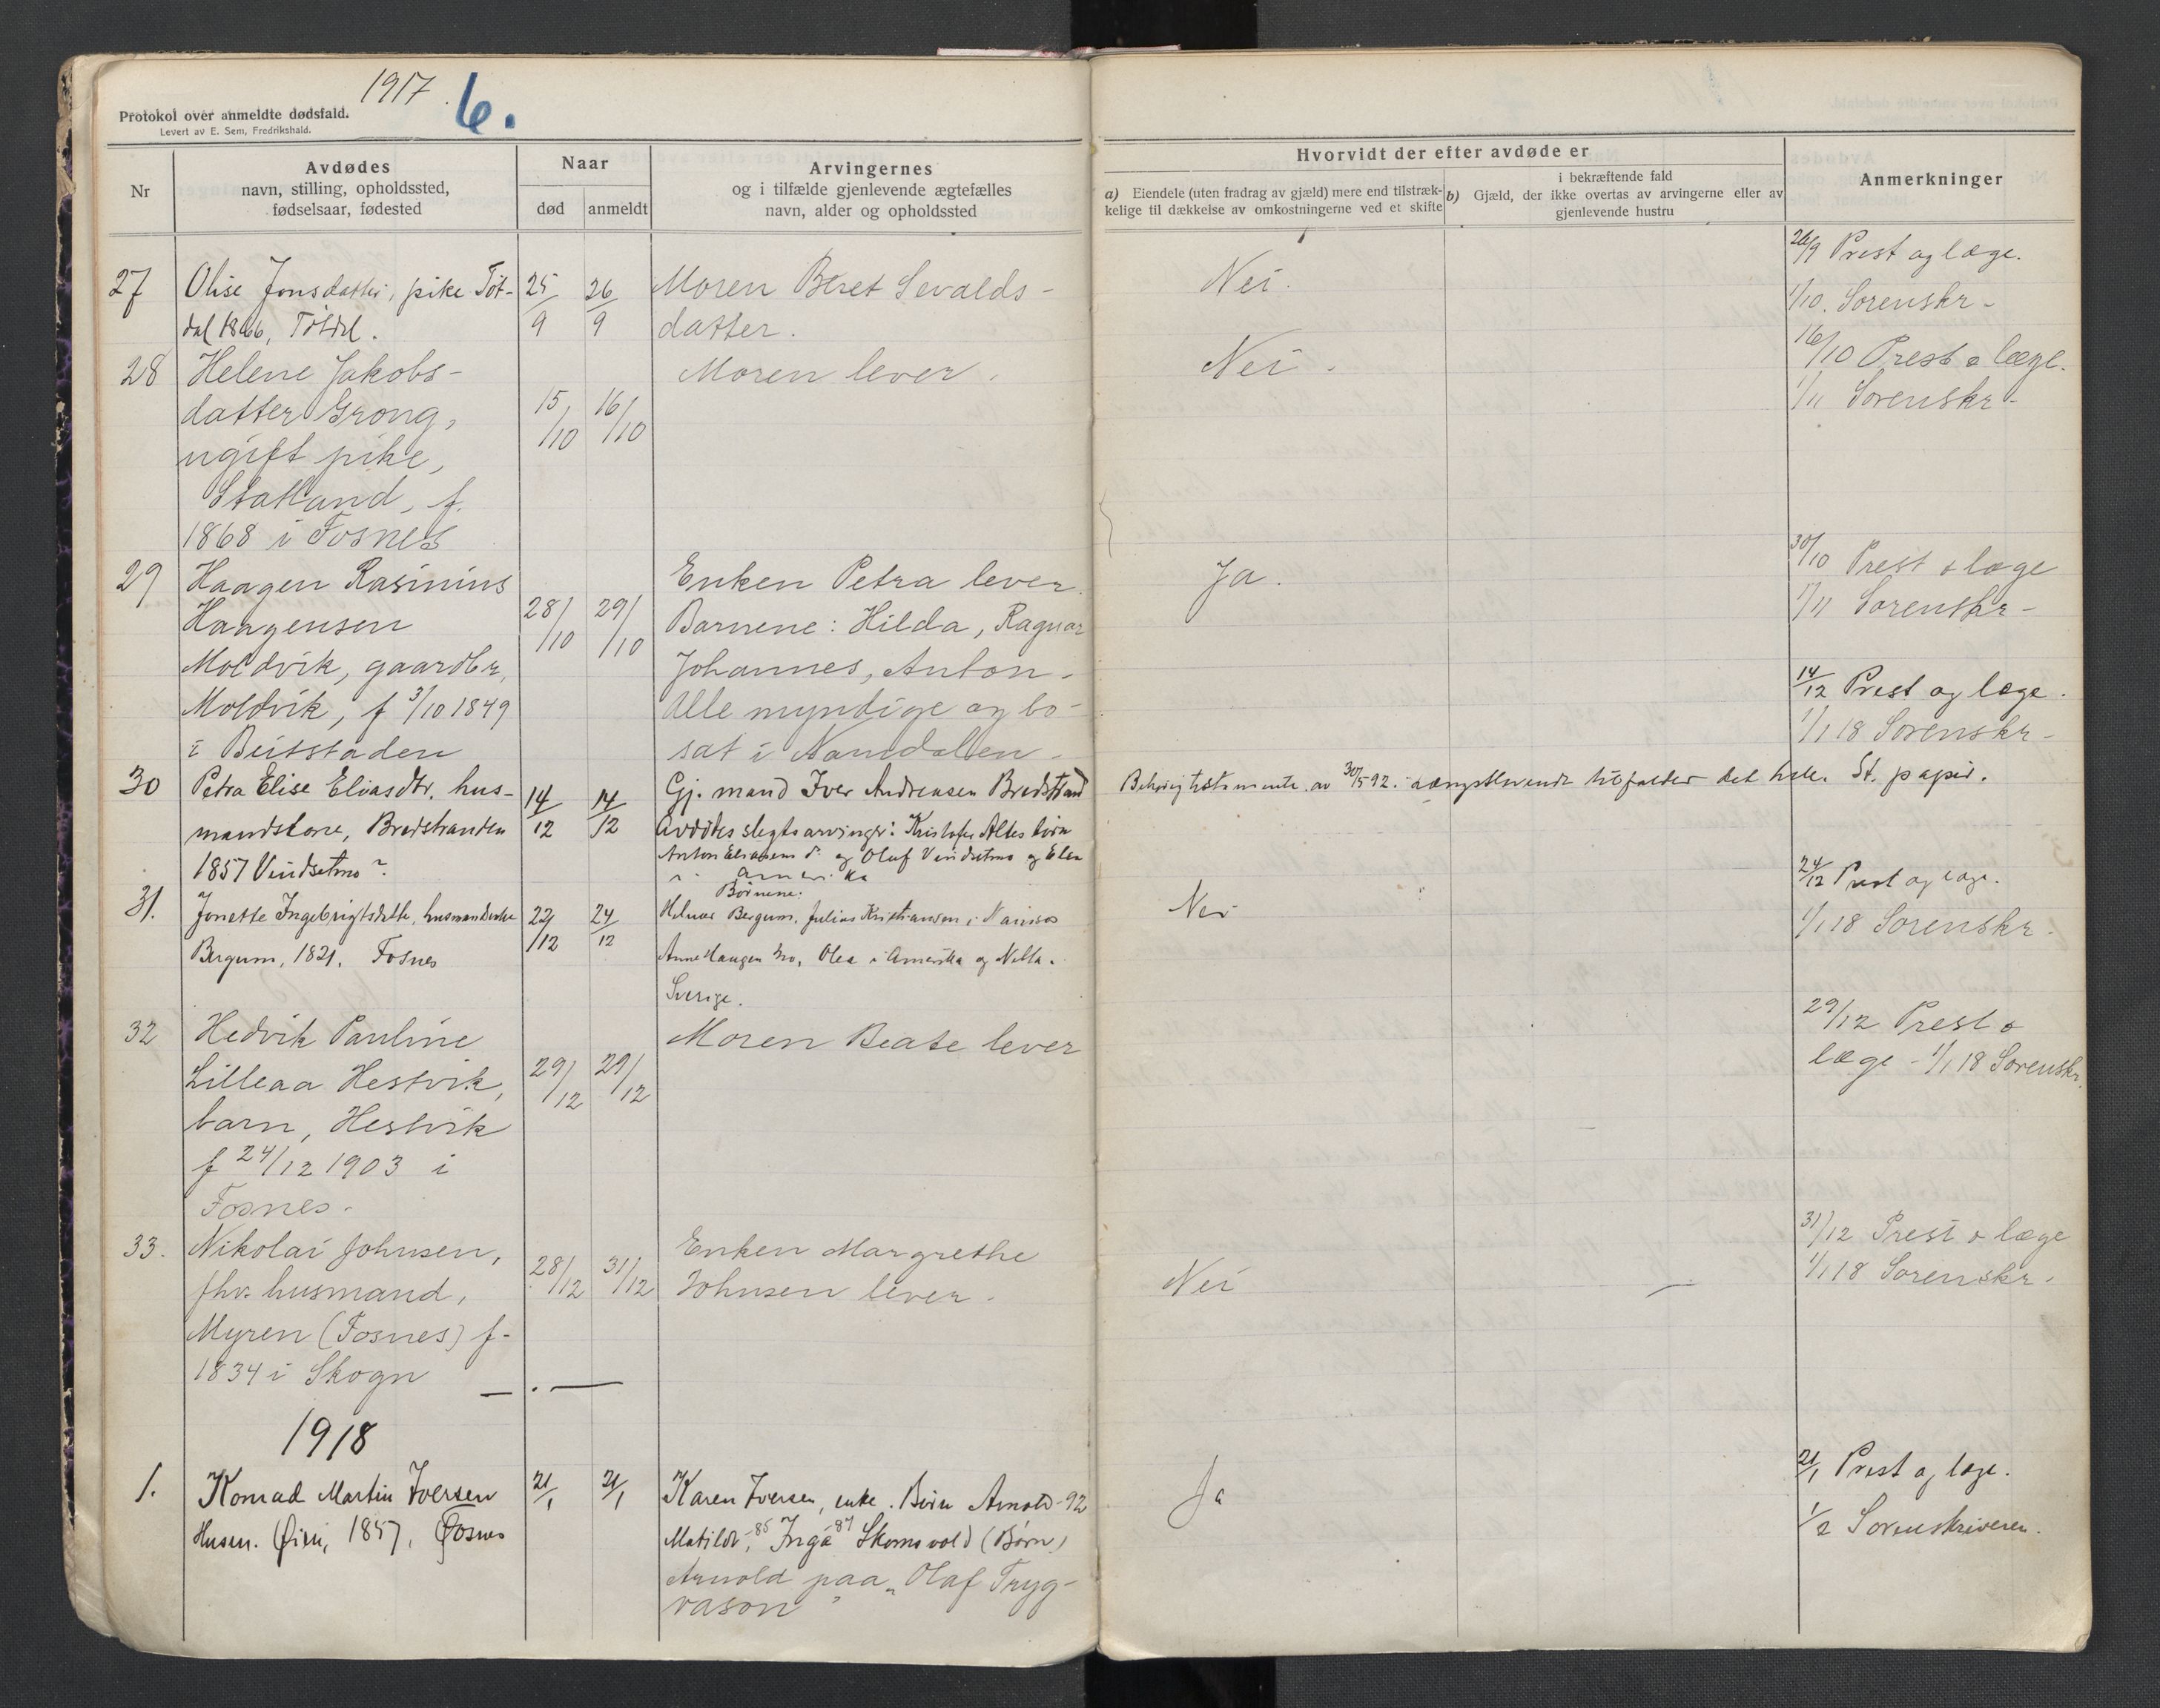 1917
6.
Protokol over anmeldte dødsfald.
Levert av E. Sem, Fredrikshald.
Nr
Avdødes
navn, stilling, opholdssted,
fødselsaar, fødested
Naar
død
anmeldt
Arvingernes
og i tilfælde gjenlevende ægtefælles
navn, alder og opholdssted
Hvorvidt der efter avdøde er
a) Eiendele (uten fradrag av gjæld) mere end tilstræk-
kelige til dækkelse av omkostningerne ved et skifte
i bekræftende fald
b) Gjæld, der ikke overtas av arvingerne eller av
gjenlevende hustru
Anmerkninger
27
Olise Jonsdatter, pike Töt-
dal 1866, Tötdal.
25/9
26/9
Moren Beret Sevalds-
datter.
Nei.
26/9 Prest og læge.
1/10. Sorenskr-
28
Helene Jakobs-
datter Grong,
ugift pike,
Statland, f.
1868 i Fosnes
15/10
16/10
Moren lever.
Nei.
16/10 Prest o læge.
1/11 Sorenskr-
29
Haagen Rasinius
Haagensen
Moldvik, gaardbr,
Moldvik, f 3/10 1849
i Beitstaden
28/10
29/10
Enken Petra lever.
Barnene: Hilda, Ragnar
Johannes, Anton-
Alle myndige og bo-
sat i Namdalen-
Ja.
30/10 Prest o læge
1/11 Sorenskr-
30
Petra Elise Eliasdtr. hus-
mandskone, Bredstranden
1857 Vindsetmo
14/12
14/12
Gj. mand Iver Andreasen Bredstrand
Avdödes slegtsarvinger: Kristofer Altes börn
Anton Eliasen og Oluf Vindsetmo og Elen
i Amerika
testamente av 30/5 92. længstlevende tilfalder det hele. St. papir.
14/12 Prest og læge.
1/1 18 Sorenskr-
31.
Jonette Ingebrigtsdatter, husmandsenke
Bergum, 1821. Fosnes
22/12
24/12
Börnene:
Bergum, Julius Kristiansen i Namsos
Anne Haugen, Olea i Amerika og
Sverige.
Nei
24/12 Prest og læge.
1/1 18 Sorenskr.
32
Hedvik Pauline
Lilleaa Hestvik,
barn, Hestvik
f 24/12 1903 i
Fosnes-
29/12
29/12
Moren Beate lever
29/12 Prest o
læge - 1/1 18 Sorenskr.
33.
Nikolai Johnsen,
fhv. husmand,
Myren (Fosnes) f-
1834 i Skogn
28/12
31/12
Enken Margrethe
Johnsen lever.
Nei
31/12 Prest o læge
1/1 18 Sorenskr.
1918
1.
Konrad Martin Iversen
Husm. Öien, 1857, Fosnes
21/1
21/1
Karen Iversen, enke. Börn Arnold-92
Matilde,-85 Inga-87 Skomsvold (Börn)
Arnold paa "Olaf Tryg-
vason"
Ja
21/1 Prest og læge.
1/2 Sorenskriveren.